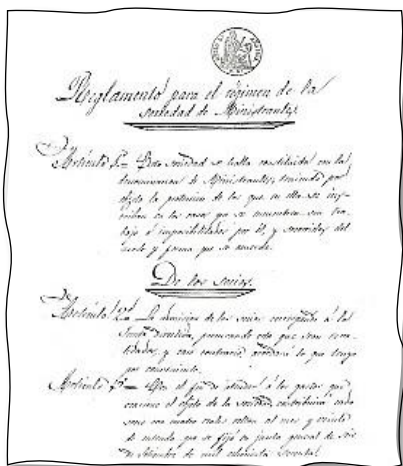 Reglamento para el régimen de la
Sociedad de Ministrantes.
Artículo 1º= Esta sociedad se halla constituida con la
denominacion de Ministrantes, teniendo por
objeto la proteccion de los que en ella se ins-
criban en los casos que se encuentren sin tra-
bajo ó imposibilitados por él, y socorridos del
modo y forma que se acuerde.
De los socios.
Artículo 2º= La admision de los socios corresponde á la
Junta Directiva, procurando esta que sean
y caso contrario, acordará lo que tenga
por conveniente.
Artículo 3º= Con el fin de atender á los gastos que
ocasione el objeto de la sociedad, contribuirá cada
socio con cuatro reales vellon al mes y veinte
de entrada, que se fijó en junta general de
de Setiembre de mil ochocientos sesenta